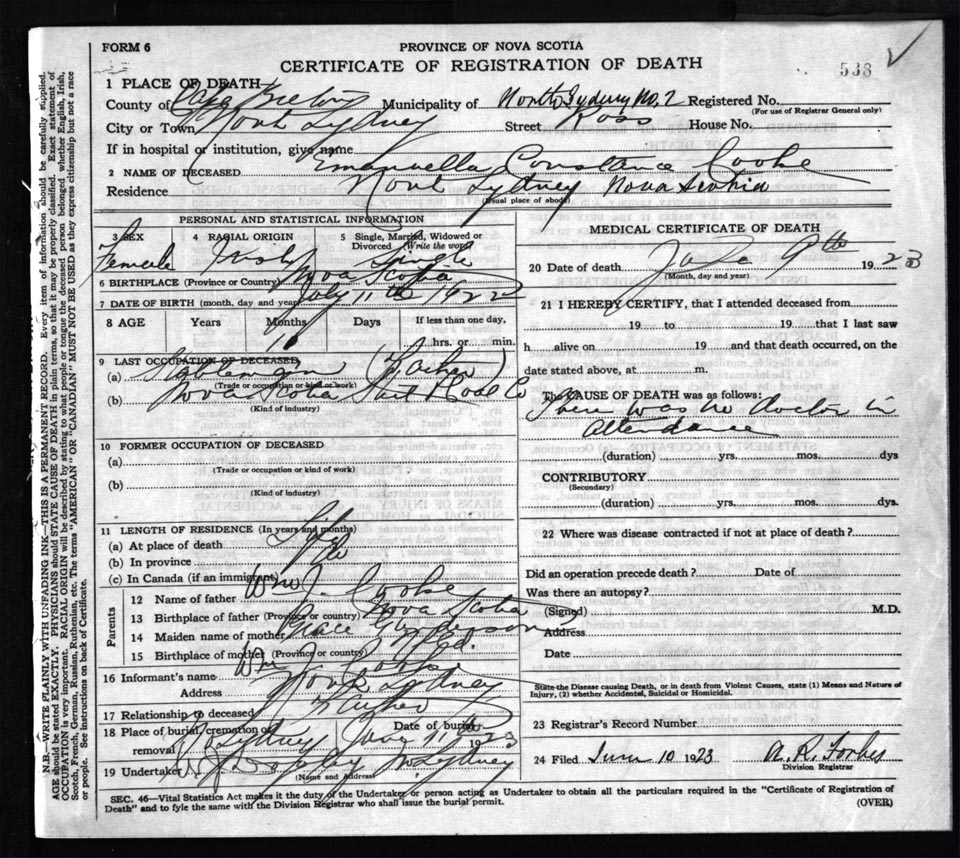 FORM 6
PROVINCE OF NOVA SCOTIA
CERTIFICATE OF REGISTRATION OF DEATH
538
1 PLACE OF DEATH—
County of Cape Breton Municipality of North Sydney No. 2 Registered No.
(For use of Registrar General only)
City or Town North Sydney Street Ross House No.
If in hospital or institution, give name
2 NAME OF DECEASED Emanuella Constance Cooke
Residence North Sydney Nova Scotia
(Usual place of abode)
PERSONAL AND STATISTICAL INFORMATION
3 SEX 4 RACIAL ORIGIN 5 Single, Married, Widowed or Divorced (Write the word)
Female Irish Single
6 BIRTHPLACE (Province or Country) Nova Scotia
7 DATE OF BIRTH (month, day and year) July 11th 1922
8 AGE Years Months Days If less than one day,
hrs. or min.
9 LAST OCCUPATION OF DECEASED
(a) (Father)
(Trade or occupation or kind of work)
(b) Nova Scotia Steel & Coal Co
(Kind of industry)
10 FORMER OCCUPATION OF DECEASED
(a)
(Trade or occupation or kind of work)
(b)
(Kind of industry)
11 LENGTH OF RESIDENCE (In years and months)
(a) At place of death Life
(b) In province Do
(c) In Canada (if an immigrant)
Parents
12 Name of father Wm J. Cooke
13 Birthplace of father (Province or country) Nova Scotia
14 Maiden name of mother
15 Birthplace of mother (Province or country) Nfld.
16 Informant's name Wm J. Cooke
Address North Sydney
17 Relationship to deceased Father
18 Place of burial, cremation or removal N. Sydney Date of burial 11 1923
19 Undertaker N. Sydney
(Name and Address)
MEDICAL CERTIFICATE OF DEATH
20 Date of death 9th 1923
(Month, day and year)
21 I HEREBY CERTIFY, that I attended deceased from
19 to 19 that I last saw
h alive on 19 and that death occurred, on the
date stated above, at m.
The CAUSE OF DEATH was as follows:
There was no doctor in
attendance
(duration) yrs. mos. dys
CONTRIBUTORY
(Secondary)
(duration) yrs. mos. dys.
22 Where was disease contracted if not at place of death?
Did an operation precede death? Date of
Was there an autopsy?
(Signed) M.D.
Address
Date
State the Disease causing Death, or in death from Violent Causes, state (1) Means and Nature of
Injury, (2) whether Accidental, Suicidal or Homicidal.
23 Registrar's Record Number
24 Filed June 10 1923 A. R. Forbes
Division Registrar
SEC. 46—Vital Statistics Act makes it the duty of the Undertaker or person acting as Undertaker to obtain all the particulars required in the "Certificate of Registration of
Death" and to fyle the same with the Division Registrar who shall issue the burial permit.
(OVER)
N.B.—WRITE PLAINLY WITH UNFADING INK—THIS IS A PERMANENT RECORD. Every item of information should be carefully supplied.
AGE should be stated EXACTLY. PHYSICIANS should STATE CAUSE OF DEATH in plain terms, so that it may be properly classified. Exact statement of
OCCUPATION is very important. RACIAL ORIGIN will be described by stating to what people or tongue the deceased person belonged whether English, Irish,
Scotch, French, German, Russian, Ruthenian, etc. The terms "AMERICAN" or "CANADIAN" MUST NOT BE USED as they express citizenship but not a race
or people. See instructions on back of Certificate.